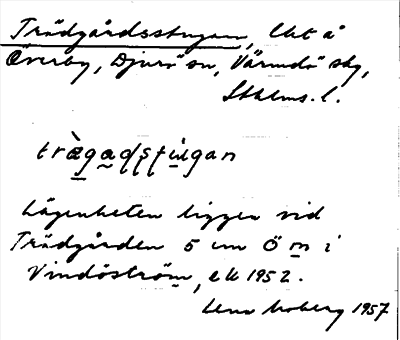 Trädgårdsstugan, lht å
Överby, Djurö sn, Värmdö skg,
Sthlms. l.
træ̀gaɖʂʈugan
Lägenheten ligger vid
Trädgården 5 cm Ö m i
Vindöström, ek 1952.
Lena Moberg 1957